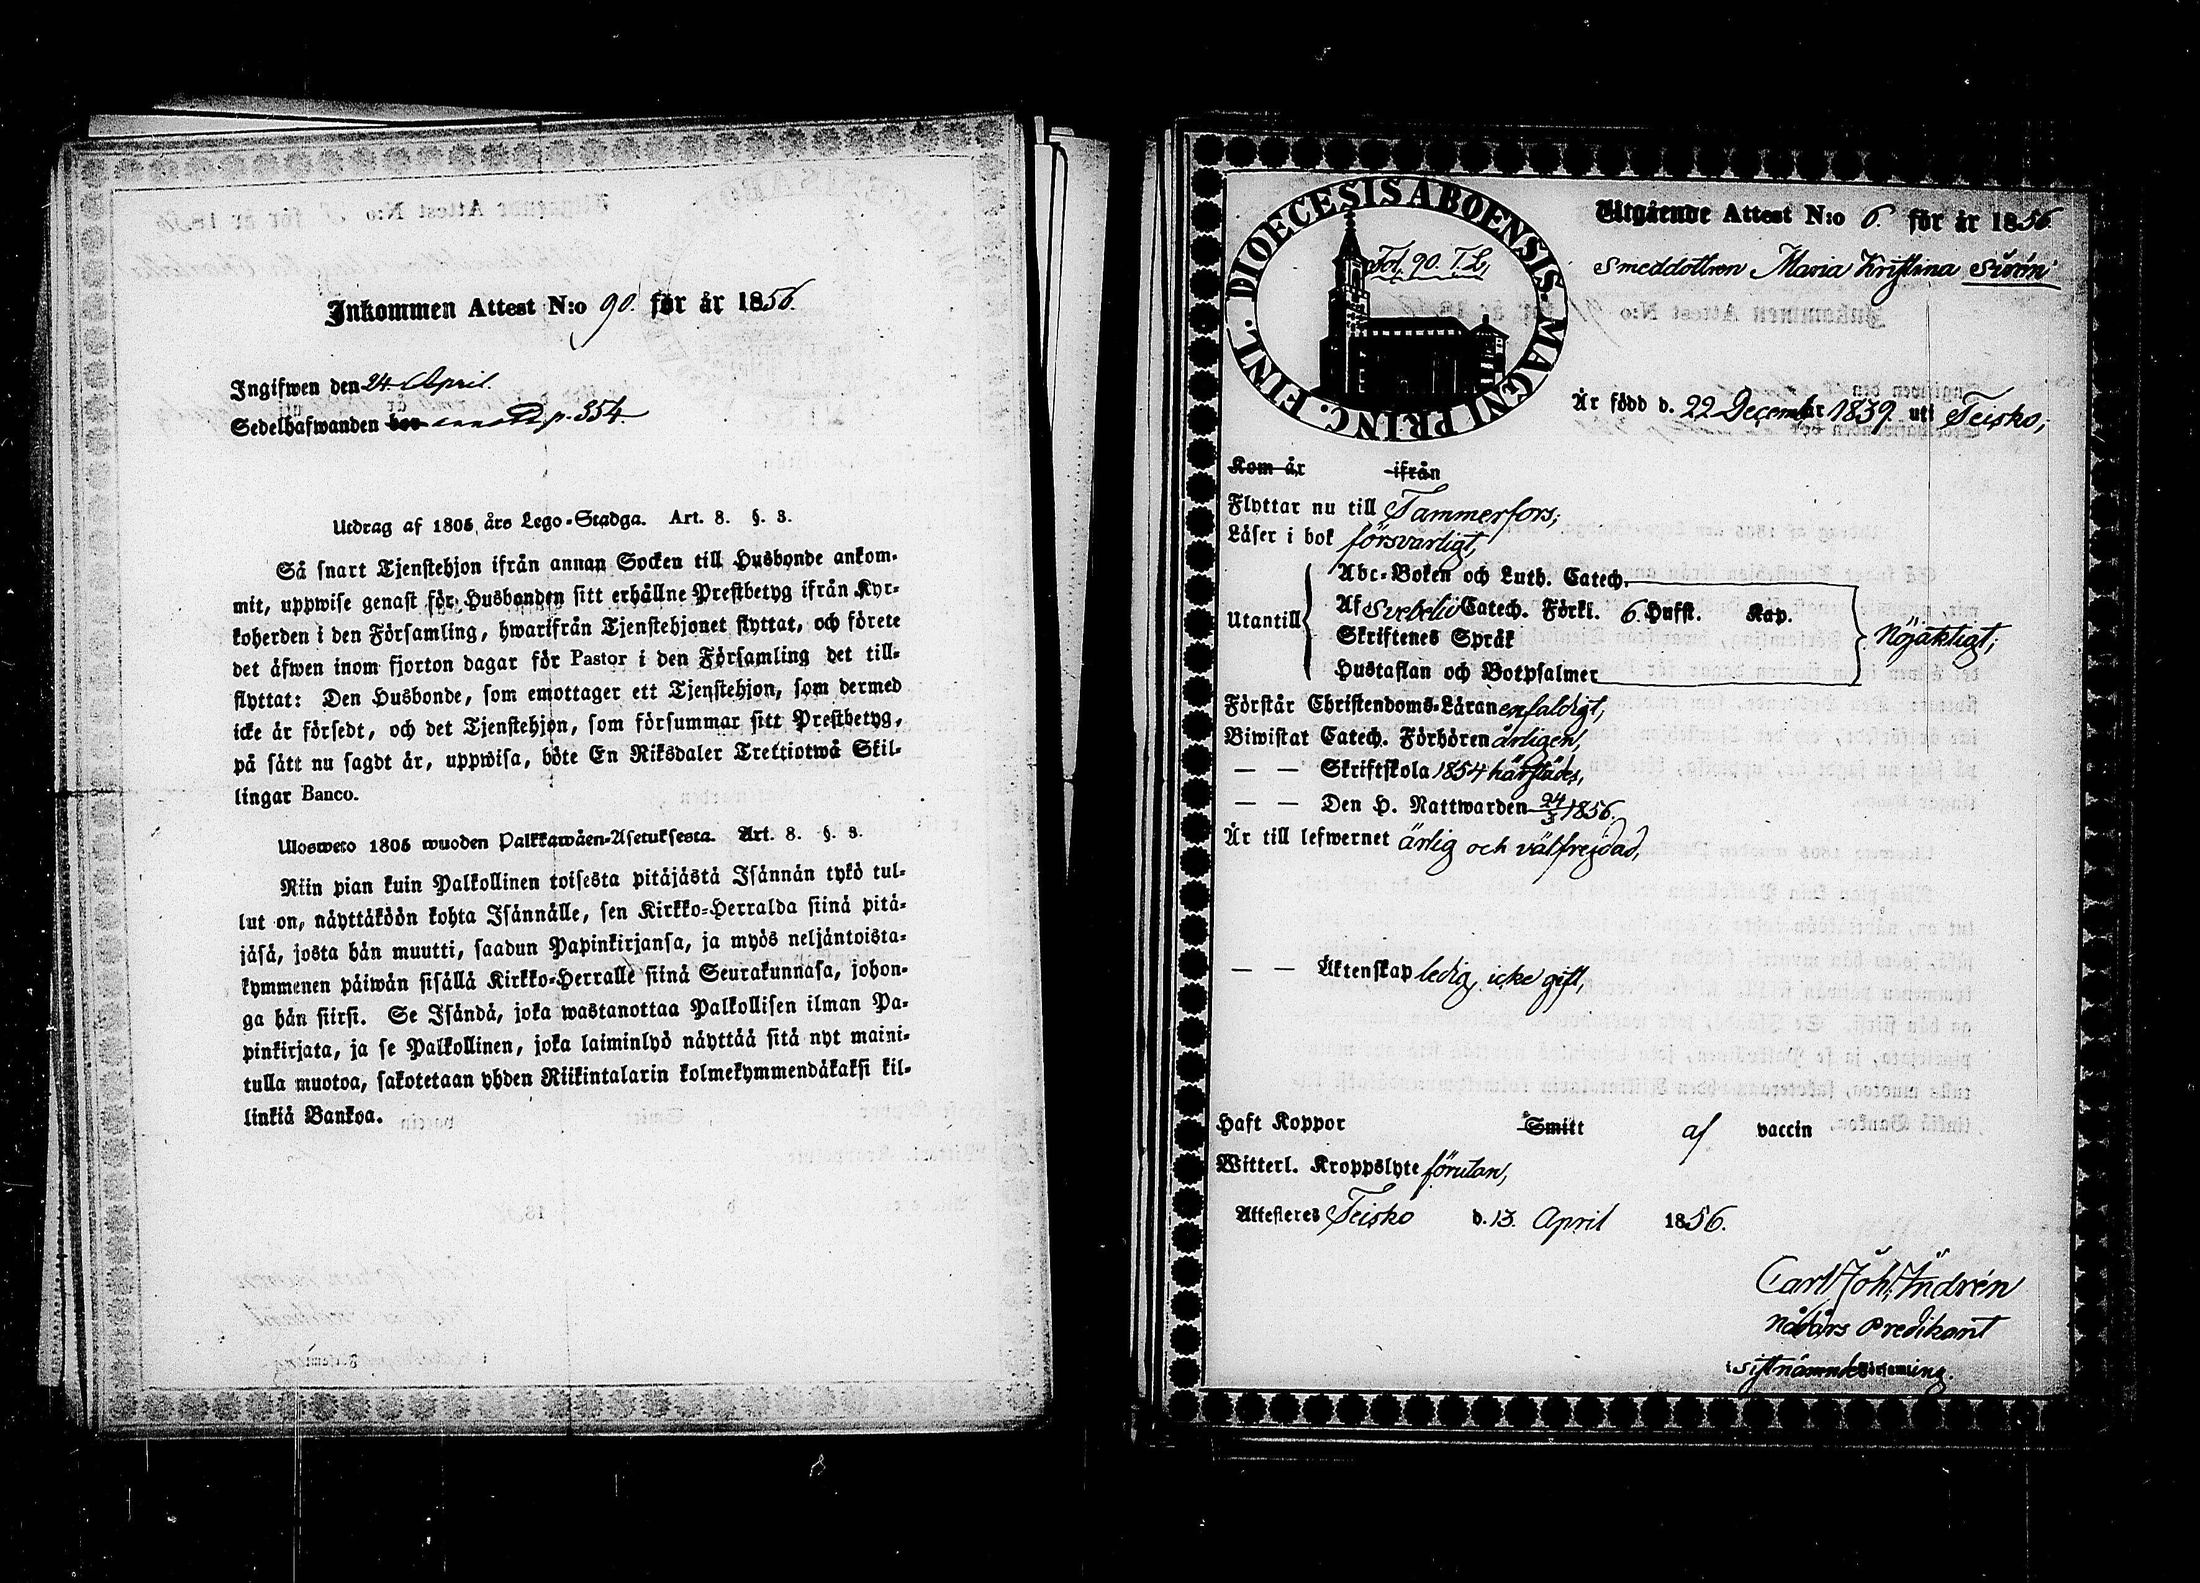 Inkommen Attest N:o 90. för år 1856.
Ingifwen den 24. April.
Sedelhafwanden bor annot. p. 354.
Utdrag af 1805 års Lego-Stadga. Art. 8. §. 3.
Så snart Tjenstehjon ifrån annan Socken till Husbonde ankom-
mit, uppwise genast för Husbonden sitt erhållne Prestbetyg ifrån Kyr-
koherden i den Församling, hwarifrån Tjenstehjonet flyttat, och förete
det äfwen inom fjorton dagar för Pastor i den Församling det till-
flyttat: Den Husbonde, som emottager ett Tjenstehjon, som dermed
icke är försedt, och det Tjenstehjon, som försummar sitt Prestbetyg,
på sätt nu sagdt är, uppwisa, böte En Riksdaler Trettiotwå Skil-
lingar Banco.
Ulosweto 1805 wuoden Palkkawäen-Asetuksesta. Art. 8. §. 3.
Niin pian kuin Palkollinen toisesta pitäjästä Isännän tykö tul-
lut on, näyttäköön kohta Isännälle, sen Kirkko-Herralda siinä pitä-
jäsä, josta hän muutti, saadun Papinkirjansa, ja myös neljäntoista-
kymmenen päiwän sisällä Kirkko-Herralle siinä Seurakunnasa, johon-
ga hän siirsi. Se Isändä, joka wastanottaa Palkollisen ilman Pa-
pinkirjata, ja se Palkollinen, joka laiminlyö näyttää sitä nyt maini-
tulla muotoa, sakotetaan yhden Riikintalarin kolmekymmendäkaksi kil-
linkiä Bankoa.
DIOECESIS ABOENSIS. MAGNI PRINC. FINL.
Fol. 90. T.L.
Utgående Attest N:o 6. för år 1856.
Smeddottren Maria Kristina Sirén
Är född d. 22 December 1839. uti Teisko;
Kom år ifrån
Flyttar nu till Tammerfors;
Läser i bok försvarligt,
Utantill
Abc-Boken och Luth. Catech.
Af Svebelii Catech. Förkl. 6. Hufst. Kap.
Skriftenes Språk
Hustaflan och Botpsalmer
Nöjaktigt;
Förstår Christendoms-Läran enfaldigt,
Biwistat Catech. Förhören årligen,
— — Skriftskola 1854 härstädes,
— — Den H. Nattwarden 24/3 1856.
Är till lefwernet ärlig och välfrejdad,
— — Äktenskap ledig, icke gift,
Haft Koppor Smitt af vaccin
Witterl. Kroppslyte förutan,
Attesteres Teisko d. 13. April 1856.
Carl Joh. Andrén
Nådårs Predikant
i sistnämnde Församling.